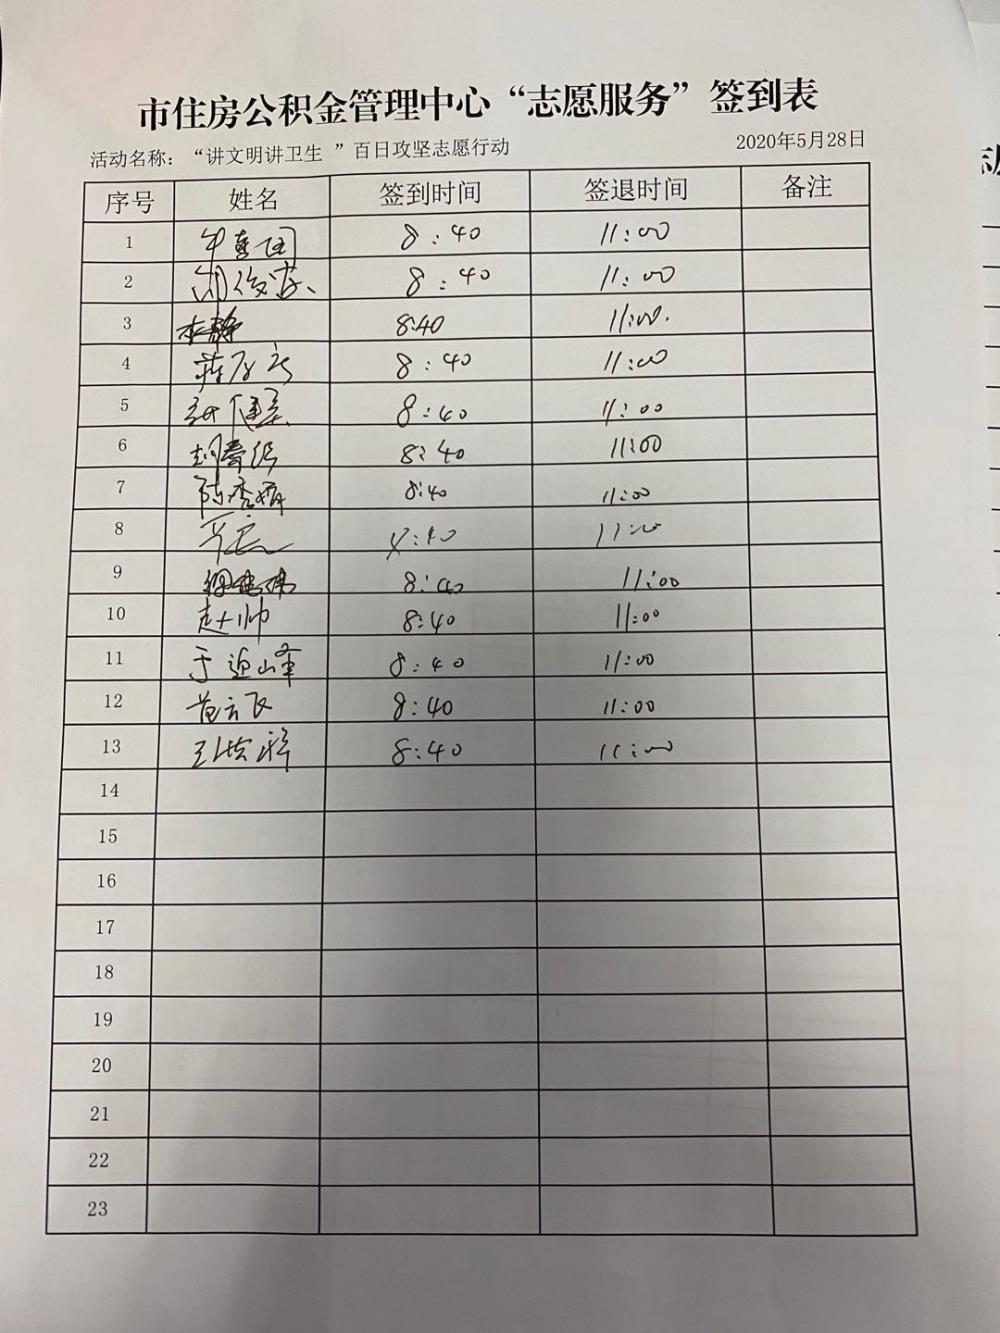 市住房公积金管理中心“志愿服务”签到表
活动名称：“讲文明讲卫生 ”百日攻坚志愿行动 2020年5月28日
序号 姓名 签到时间 签退时间 备注
1 8:40 11:00
2 8:40 11:00
3 8:40 11:00.
4 8:40 11:00
5 8:40 11:00
6 8:40 11:00
7 陈秀娟 8:40 11:00
8 8:40 11:00
9 8:40 11:00
10 赵帅 8:40 11:00
11 于迎山峰 8:40 11:00
12 范云飞 8:40 11:00
13 8:40 11:00
14
15
16
17
18
19
20
21
22
23